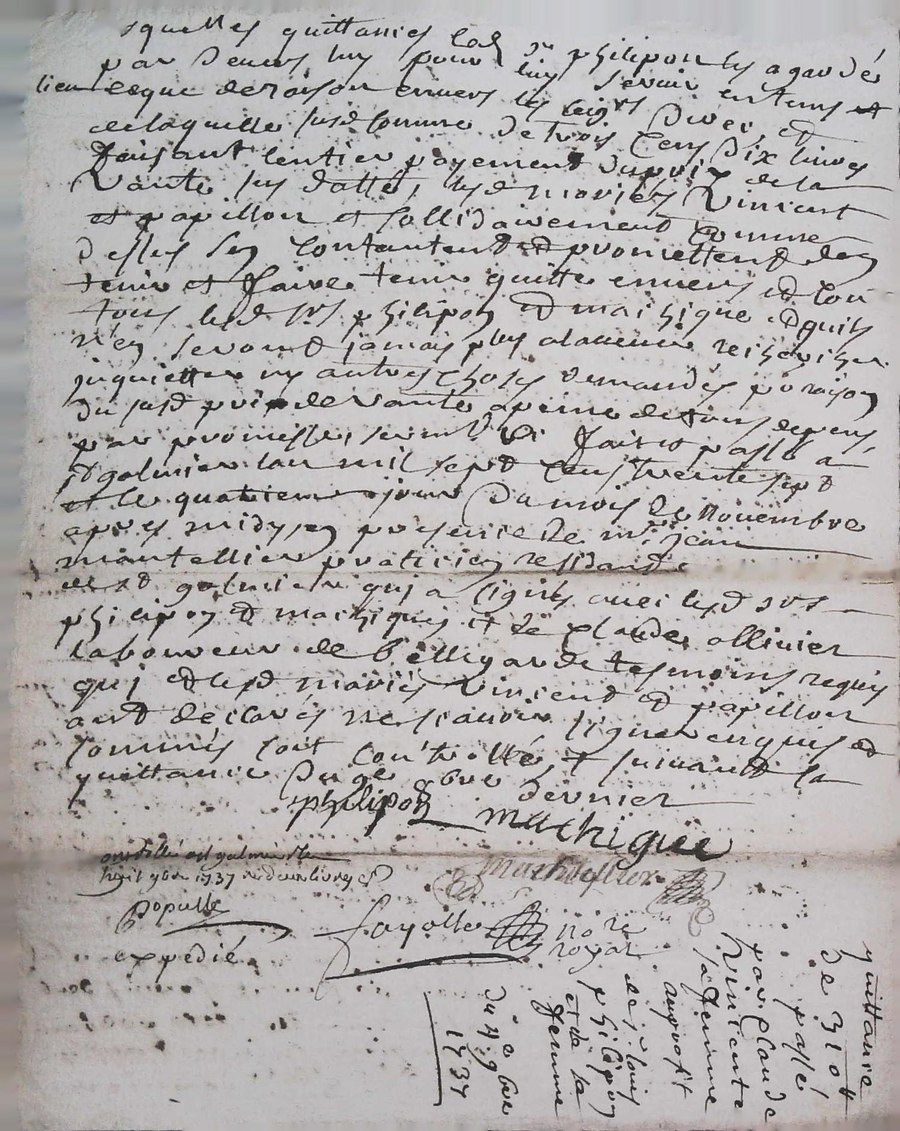 squelles quittances led sr philipon les a gardés
par devers luy pour luy servir en tems et
lieu ce que de raison envers les srs Divers et
de laquelle susd somme de trois cens dix livres
faisant lentier payement du prix de la
vante sus dattée, lesd mariés vincent
et papillon et sollidairement comme
dessus sen contantent et promettent den
tenir et faire tenir quitte envers et con
tous lesd srs philipon et machigue et quils
n'en seront jamais plus a lavenir recherches
inquiettes ny autres choses demandés p raison
du susd prix de vante a peine de tous depens
par promesse, serment &c fait et passé a
st galmier lan mil sept cens trente sept
et le quatrieme jour du mois de novembre
apres midy en presence de mre jean
mantellier praticien residant
aud st galmier qui a signé avec lesd srs
philipon et machigue et de claude ollivier
laboureur de bellegarde tesmoins requis
qui et lesd mariés vincent et papillon
ont declarés ne scavoir signer enquis et
sommés soit controllé, et suivant la
quittance du 9bre dernier
philipon machigue
mantellier
controllé a st galmier le
huit 9bre 1737 rec deux livres
Populle
fayolle nore royal
expedié
quittance
de 310lt
passé
par claude
vincent et
sa femme
au profit
de louis
philipon
et de sa
femme
du 4e 9bre
1737